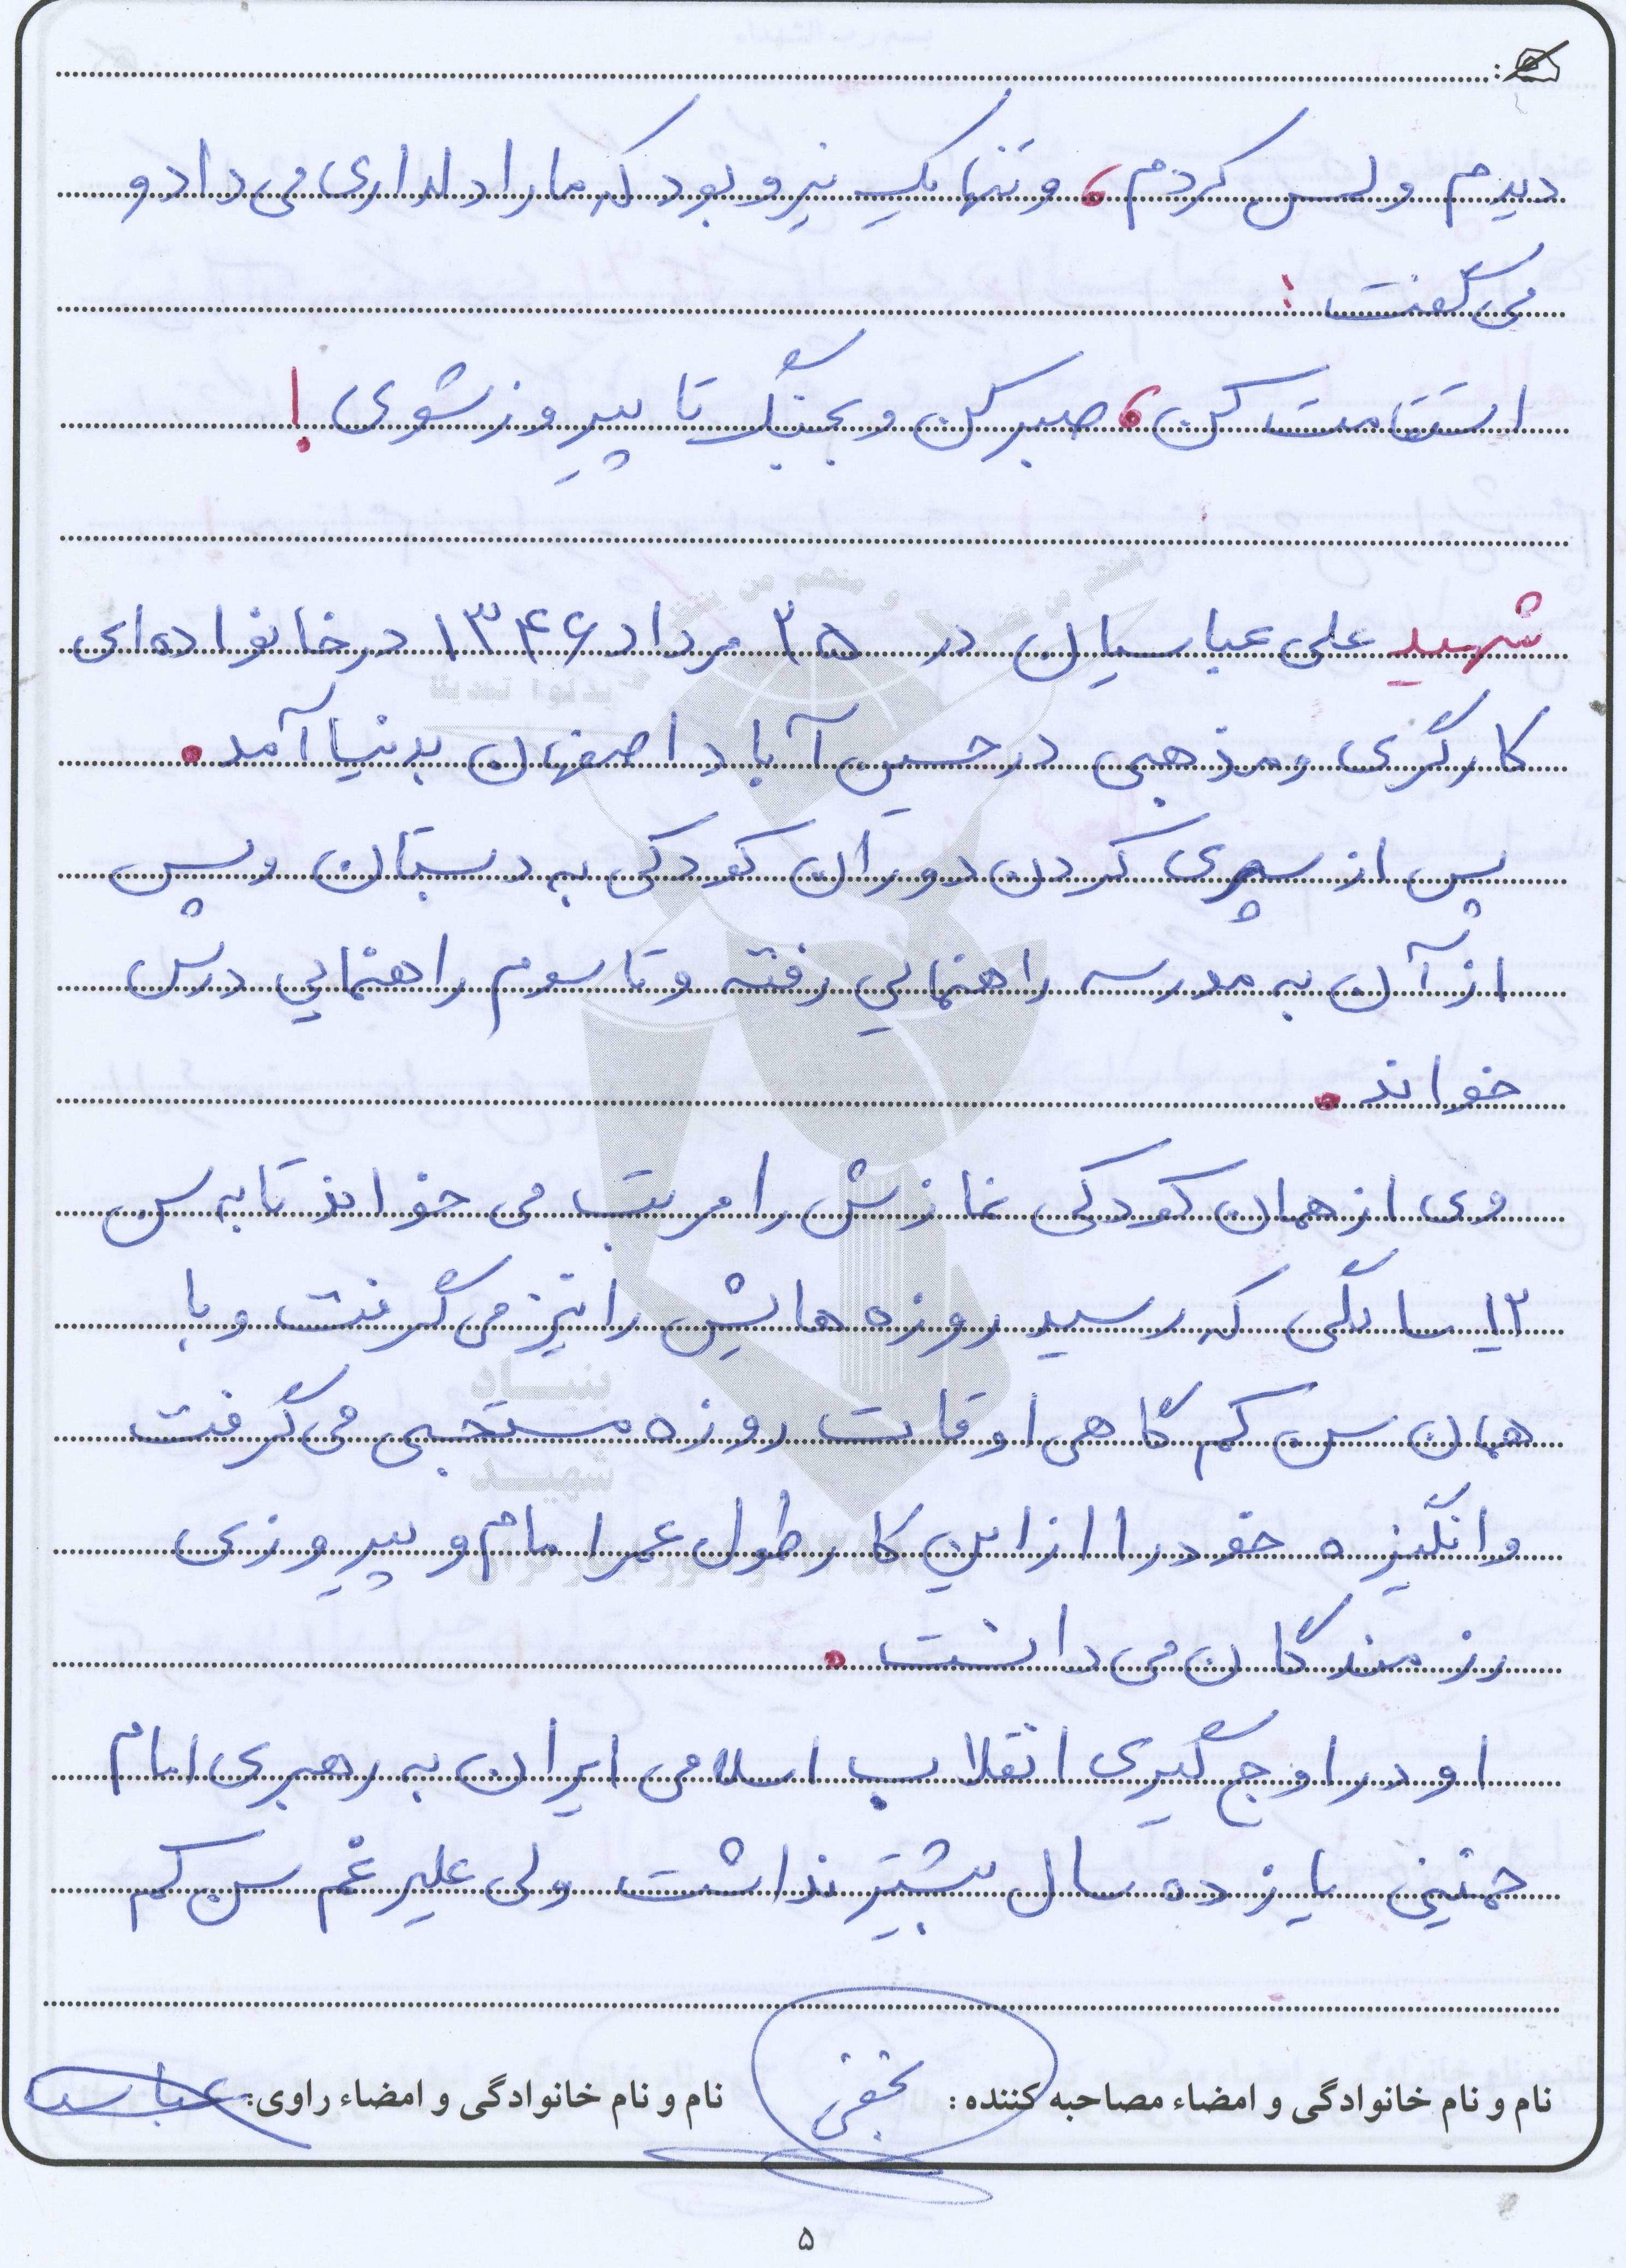 دیدم و لمس کردم، و تنها یک نیرو بود که ما را دلداری می داد و
می گفت :
استقامت کن، صبر کن و بجنگ تا پیروز شوی !
شهید علی عباسیان در ۲۵ مرداد ۱۳۴۶ در خانواده ای
کارگری و مذهبی در حسین آباد اصفهان بدنیا آمد.
پس از سپری کردن دوران کودکی به دبستان و پس
از آن به مدرسه راهنمایی رفته و تا سوم راهنمایی درس
خواند.
وی از همان کودکی نمازش را مرتب می خواند تا به سن
۱۲ سالگی که رسید روزه هایش را نیز می گرفت و با
همان سن کم گاهی اوقات روزه مستحبی می گرفت
و انگیزه خود را از این کار طول عمر امام و پیروزی
رزمندگان می دانست.
او در اوج گیری انقلاب اسلامی ایران به رهبری امام
خمینی یازده سال بیشتر نداشت ولی علیرغم سن کم
نام و نام خانوادگی و امضاء مصاحبه کننده : نجفی نام و نام خانوادگی و امضاء راوی:
بنیاد
شهید
۵